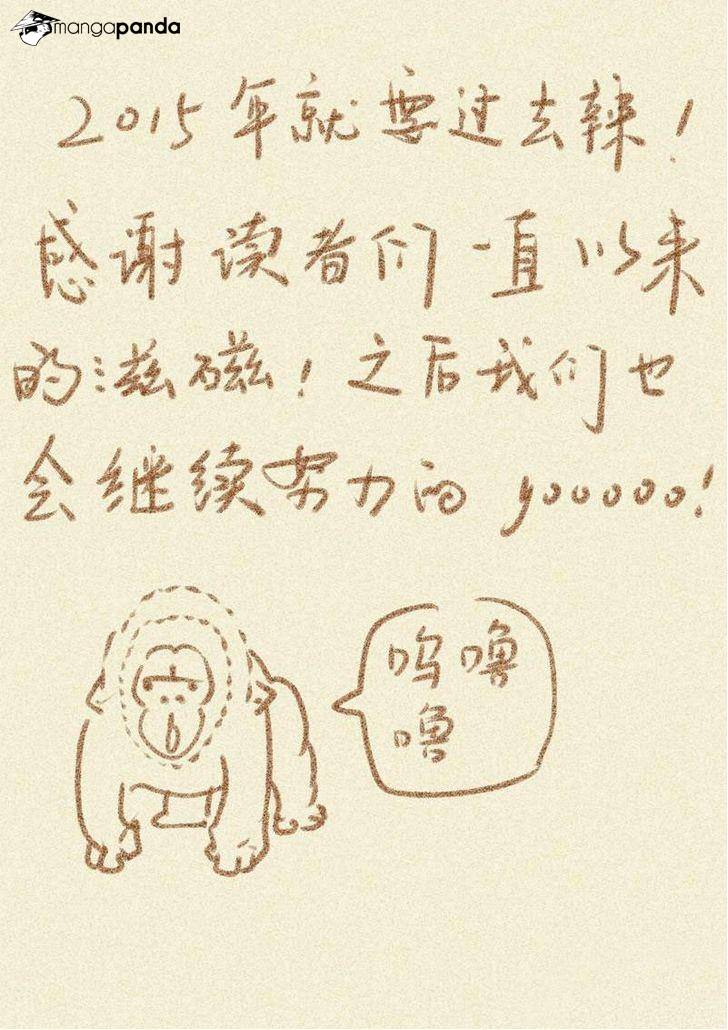 mangapanda
2015年就要过去辣！
感谢读者们一直以来
的滋磁！之后我们也
会继续努力的 yooooo!
呜噜
噜